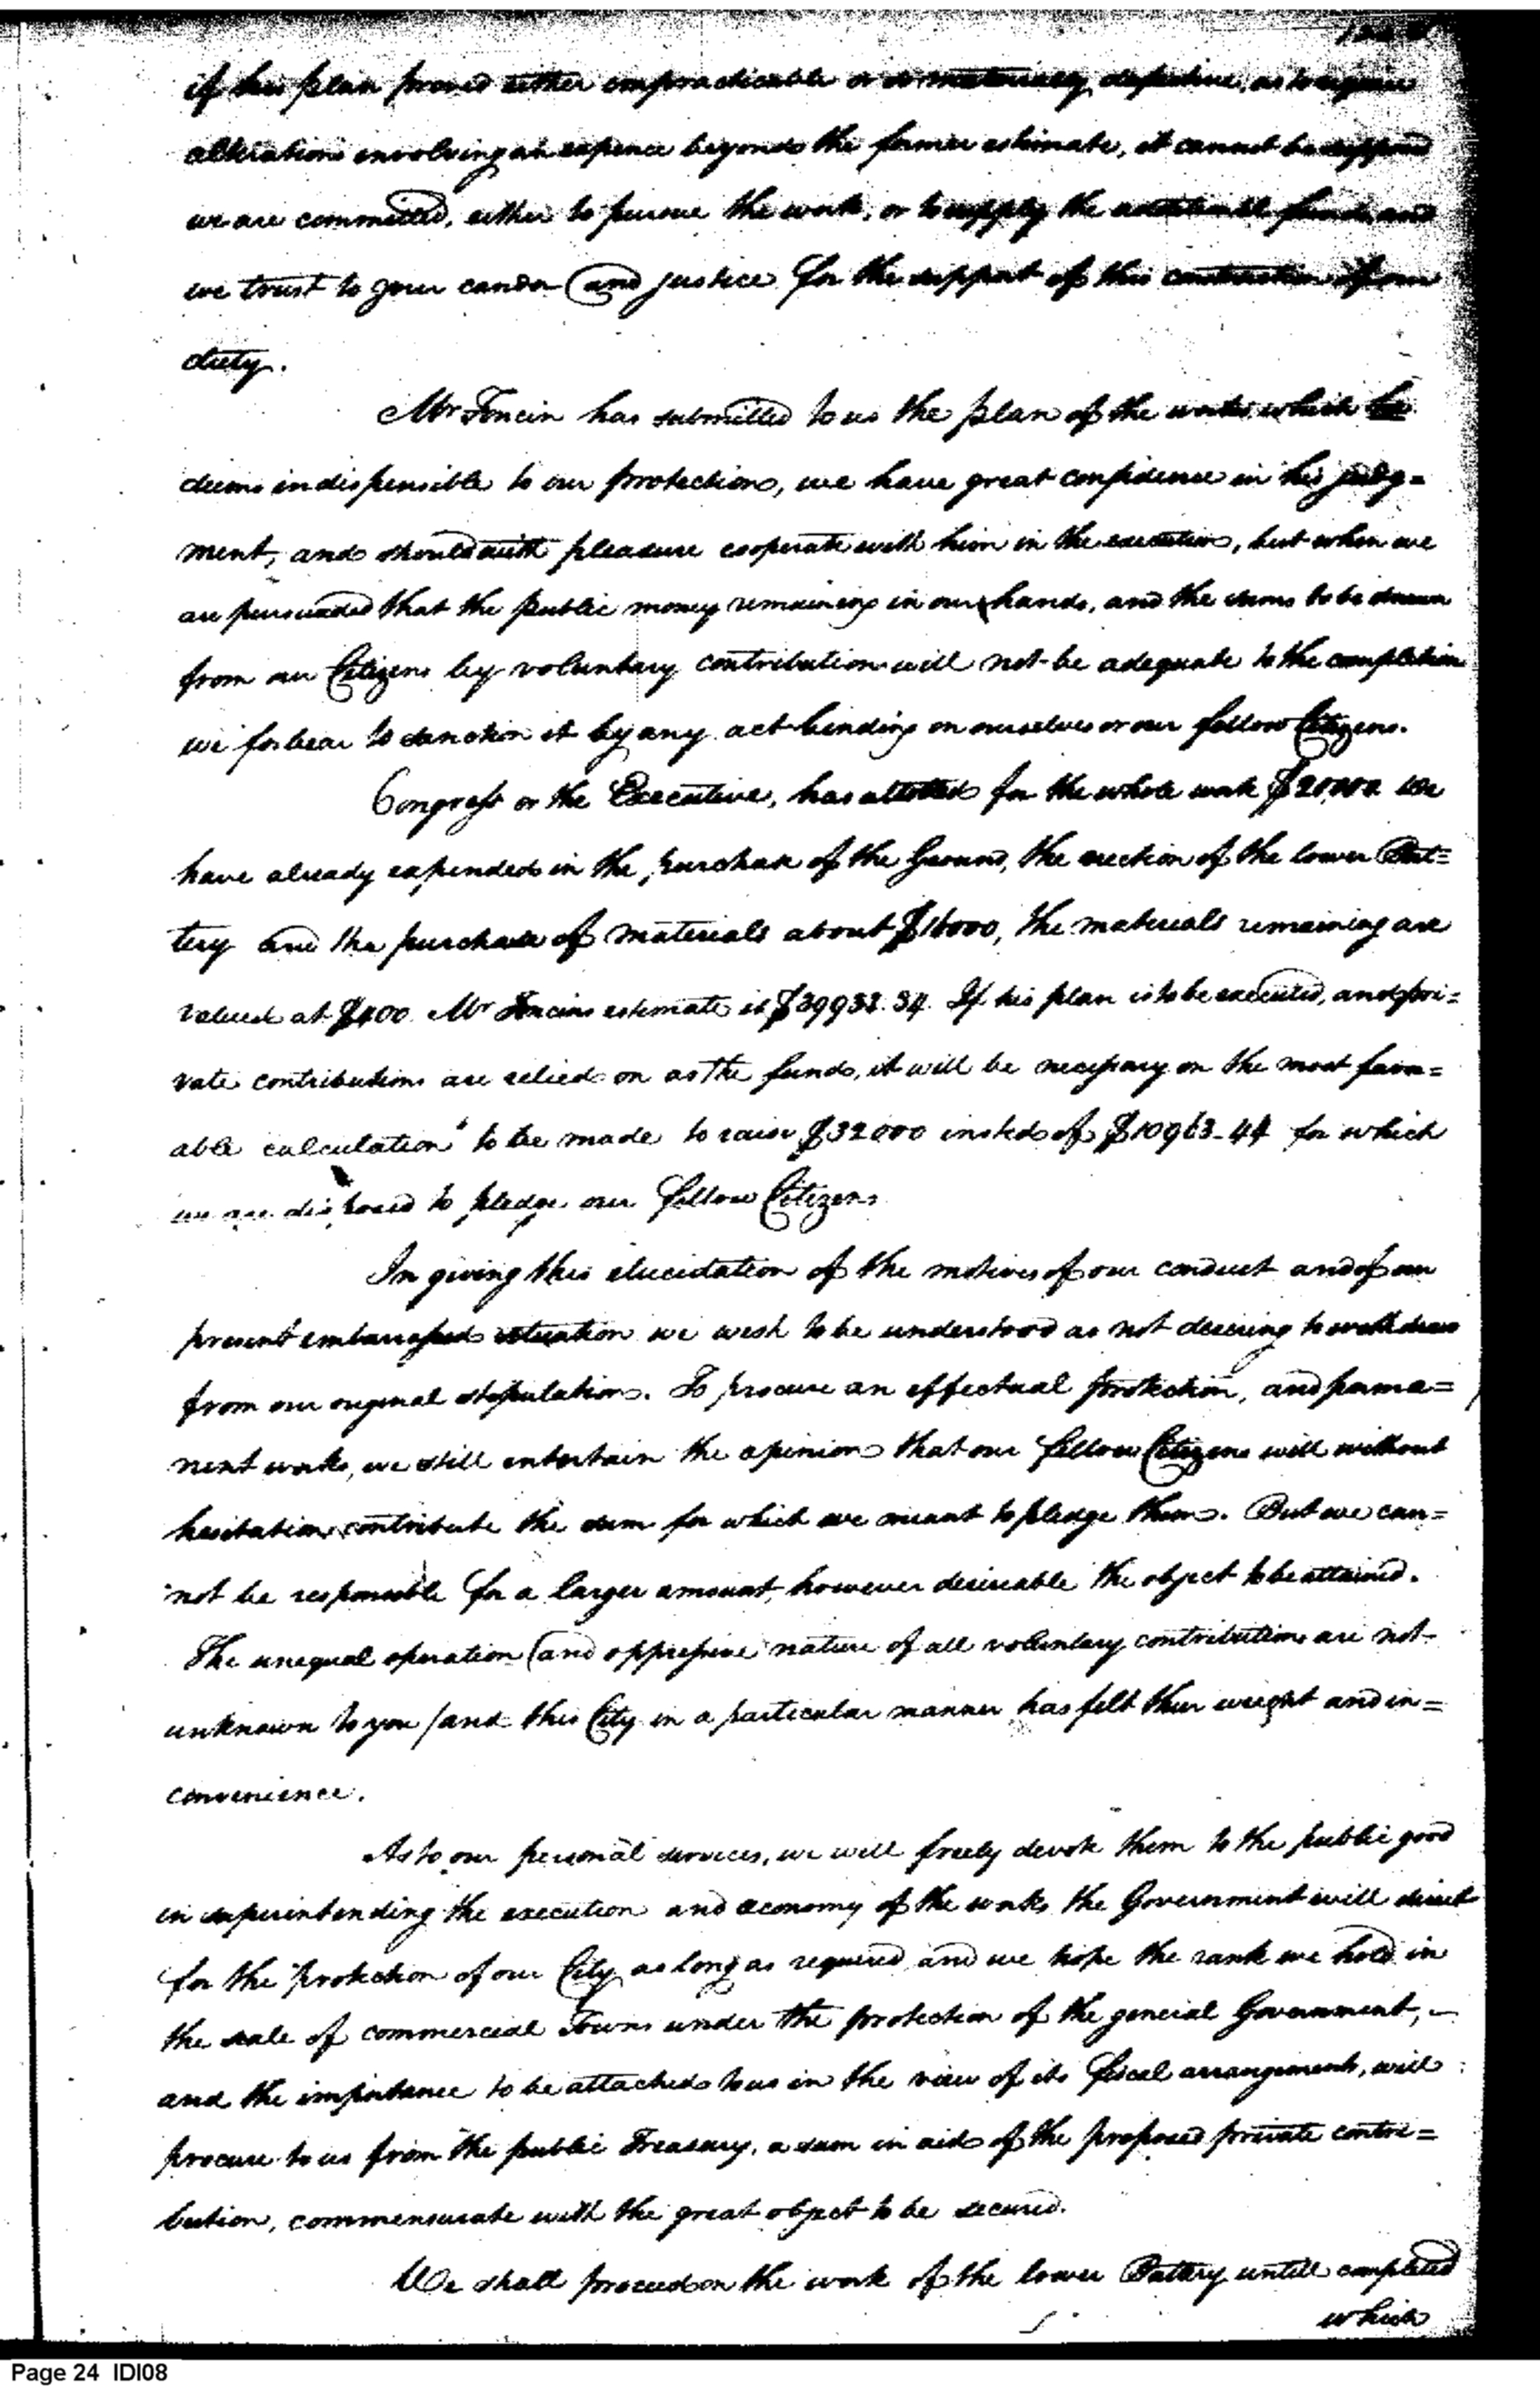 if this plan proved either impracticable or so materially defective, as to require
alterations involving an expence beyond the former estimate, it cannot be supposed
we are committed, either to pursue the work, or to supply the additional funds and
we trust to your candor and justice for the support of this construction of our
duty.
Mr Foncin has submitted to us the plan of the works which he
deems indispensible to our protection, we have great confidence in his judg=
ment, and should with pleasure cooperate with him in the execution, but when we
are persuaded that the public money remaining in our hands, and the sums to be drawn
from our Citizens by voluntary contribution will not be adequate to the completion
we forbear to sanction it by any act binding on ourselves or our fellow Citizens.
Congress or the Executive, has allotted for the whole work $20,000 We
have already expended in the purchase of the Ground, the erection of the lower Bat=
tery and the purchase of materials about $16000, the materials remaining are
valued at $400 Mr Foncins estimate is $39933.34. If his plan is to be executed, and pri=
vate contributions are relied on as the funds, it will be necessary on the most favor=
able calculation to be made to raise $32000 insted of $10963-44 for which
we are disposed to pledge our fellow Citizens
In giving this elucidation of the motives of our conduct and of our
present embarrassed situation we wish to be understood as not desiring to withdraw
from our orginal stipulation. To procure an effectual protection, and perma=
nent works, we still entertain the opinion that our fellow Citizens will without
hesitation contribute the sum for which we meant to pledge them. But we can=
not be responsible for a larger amount, however desireable the object to be attained.
The unequal operation and oppressive nature of all voluntary contributions are not
unknown to you / and this City in a particular manner has felt their weight and in=
convenience.
As to our personal services, we will freely devote them to the public good
in superintending the execution and economy of the works the Government will direct
for the protection of our City as long as required and we hope the rank we hold in
the scale of commercial Towns under the protection of the general Government, -
and the importance to be attached to us in the view of its fiscal arrangements, will
procure to us from the public Treasury, a sum in aid of the proposed private contri=
bution, commensurate with the great object to be secured.
We shall proceed on the work of the lower Battery untill completed
which
Page 24 IDI08